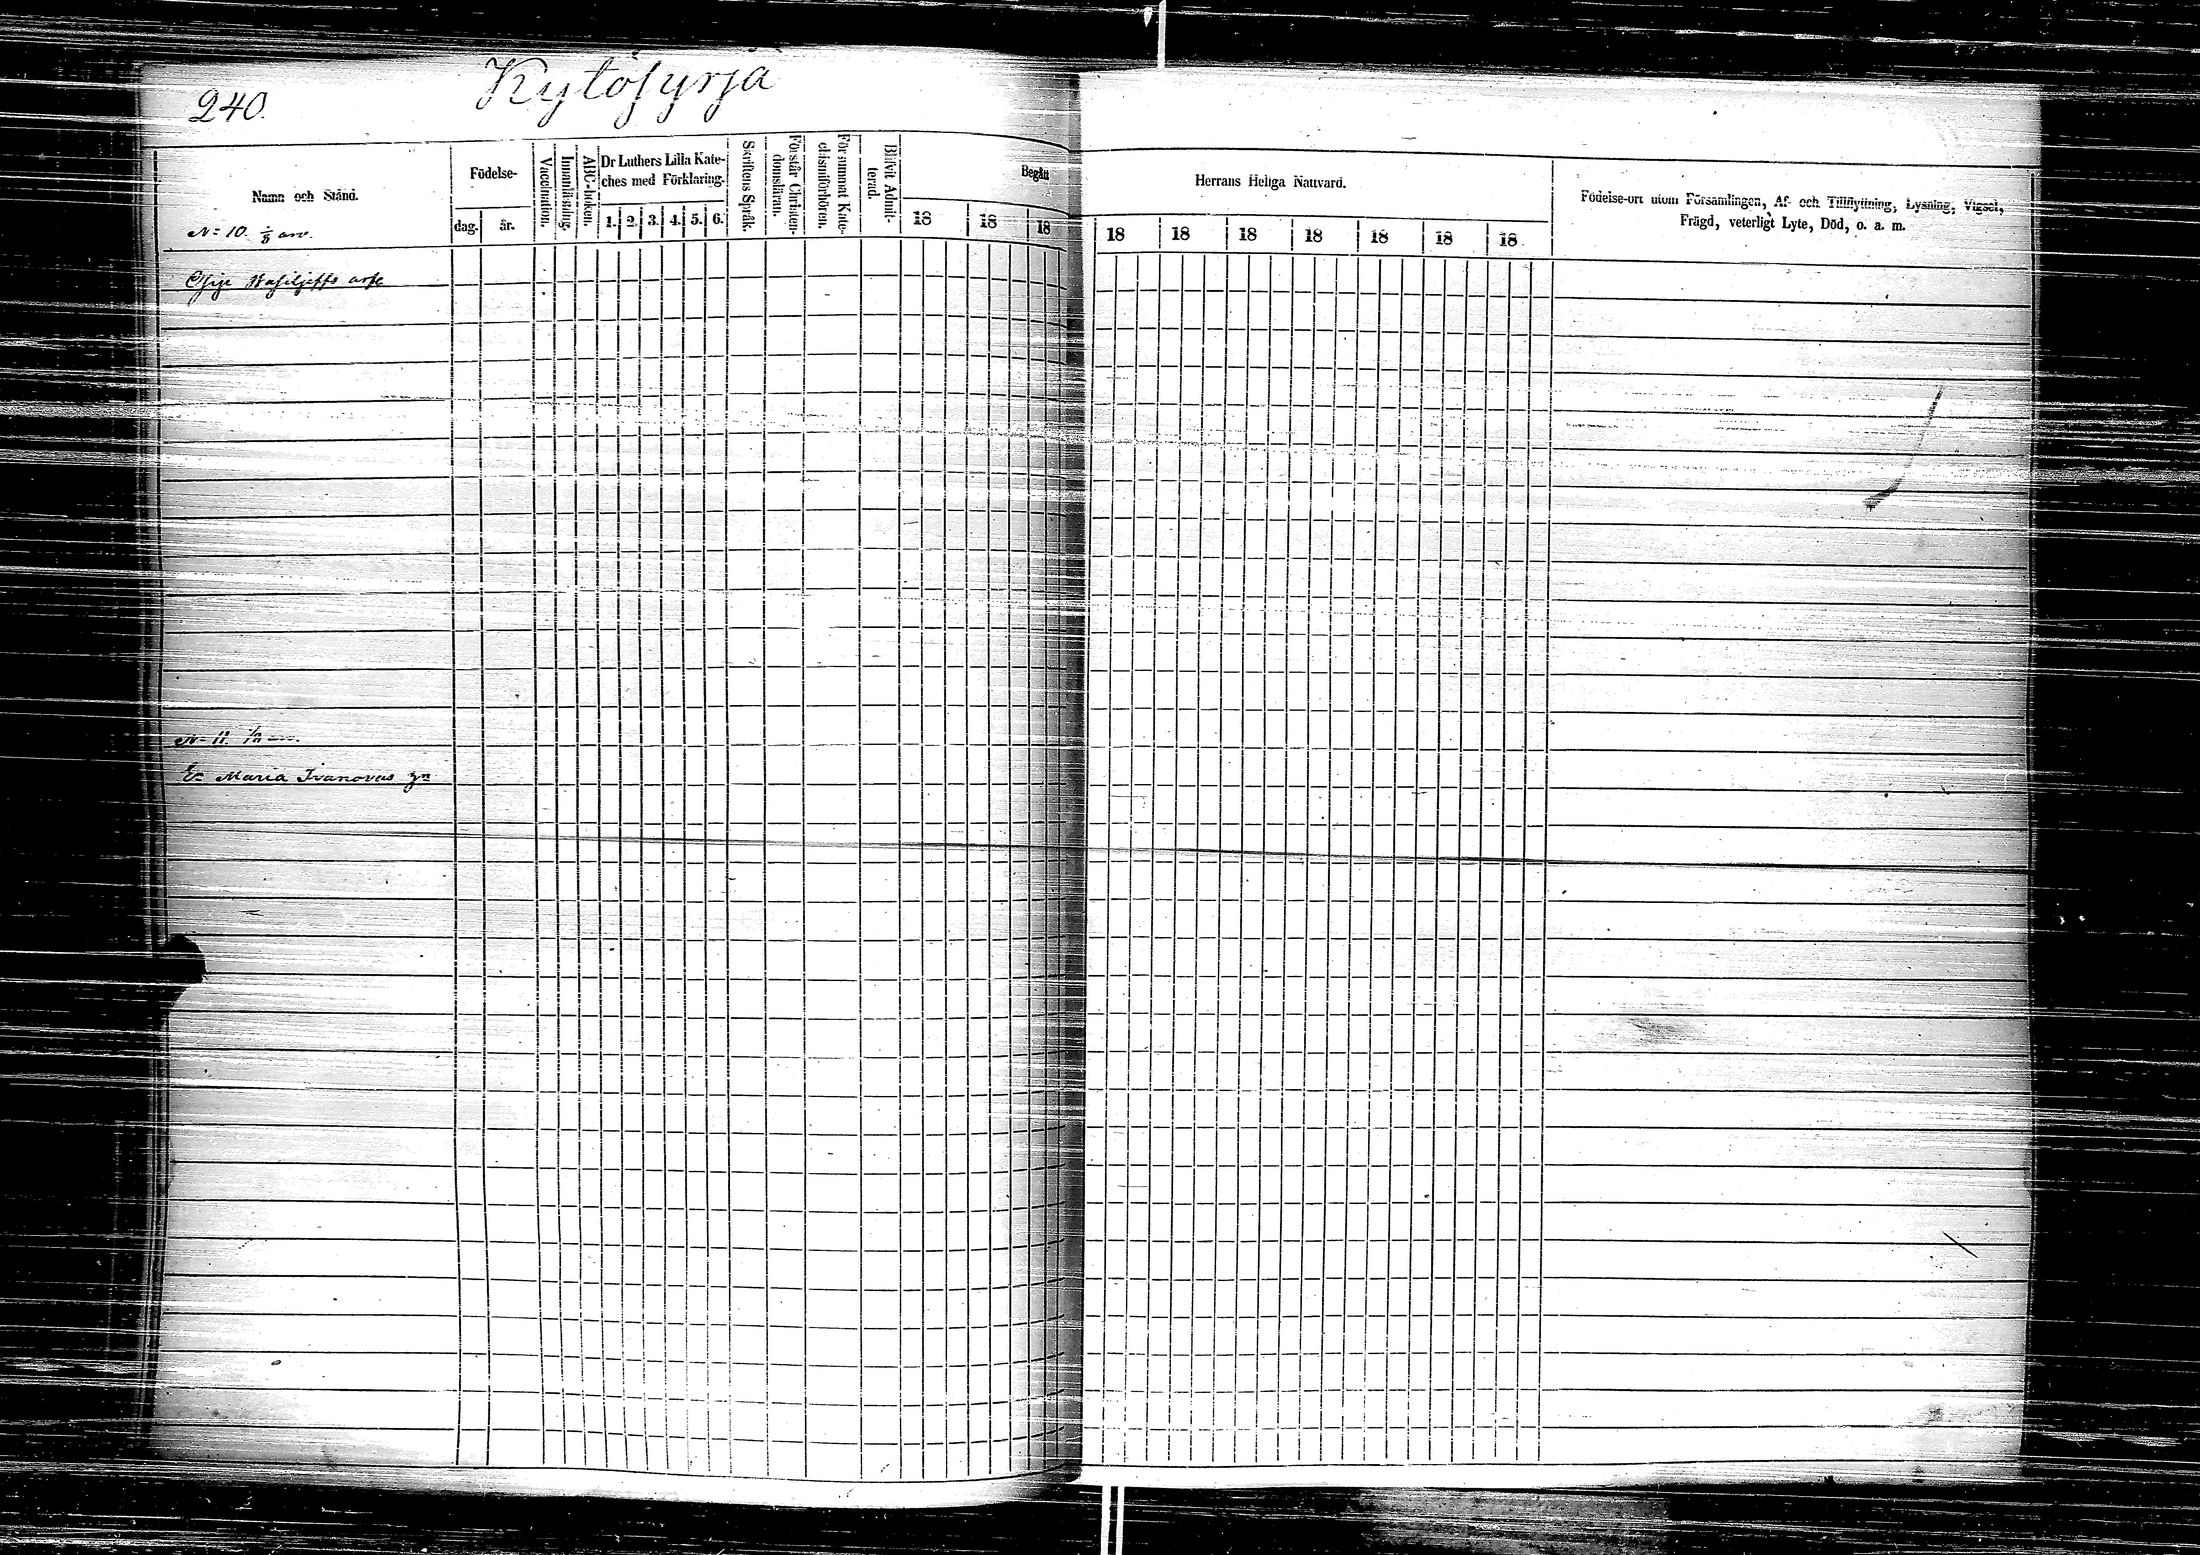 240.
Kytösyrjä
Namn och Stånd.
Födelse-
dag.
år.
Vaccination.
Innanläsning.
ABC-boken.
Dr Luthers Lilla Kate-
ches med Förklaring.
1. 2. 3. 4. 5. 6.
Skriftens Språk.
Förstår Christen-
domsläran.
Försummat Kate-
chismiförhören.
Blifvit Admit-
terad.
Begått
18 18 18
Herrans Heliga Nattvard.
18 18 18 18 18 18 18
Födelse-ort utom Församlingen, Af- och Tillflyttning, Lysning, Vigsel,
Frägd, veterligt Lyte, Död, o. a. m.
N= 10. 1/8
Wasiljeffs
N= 11.
Maria Ivanovas